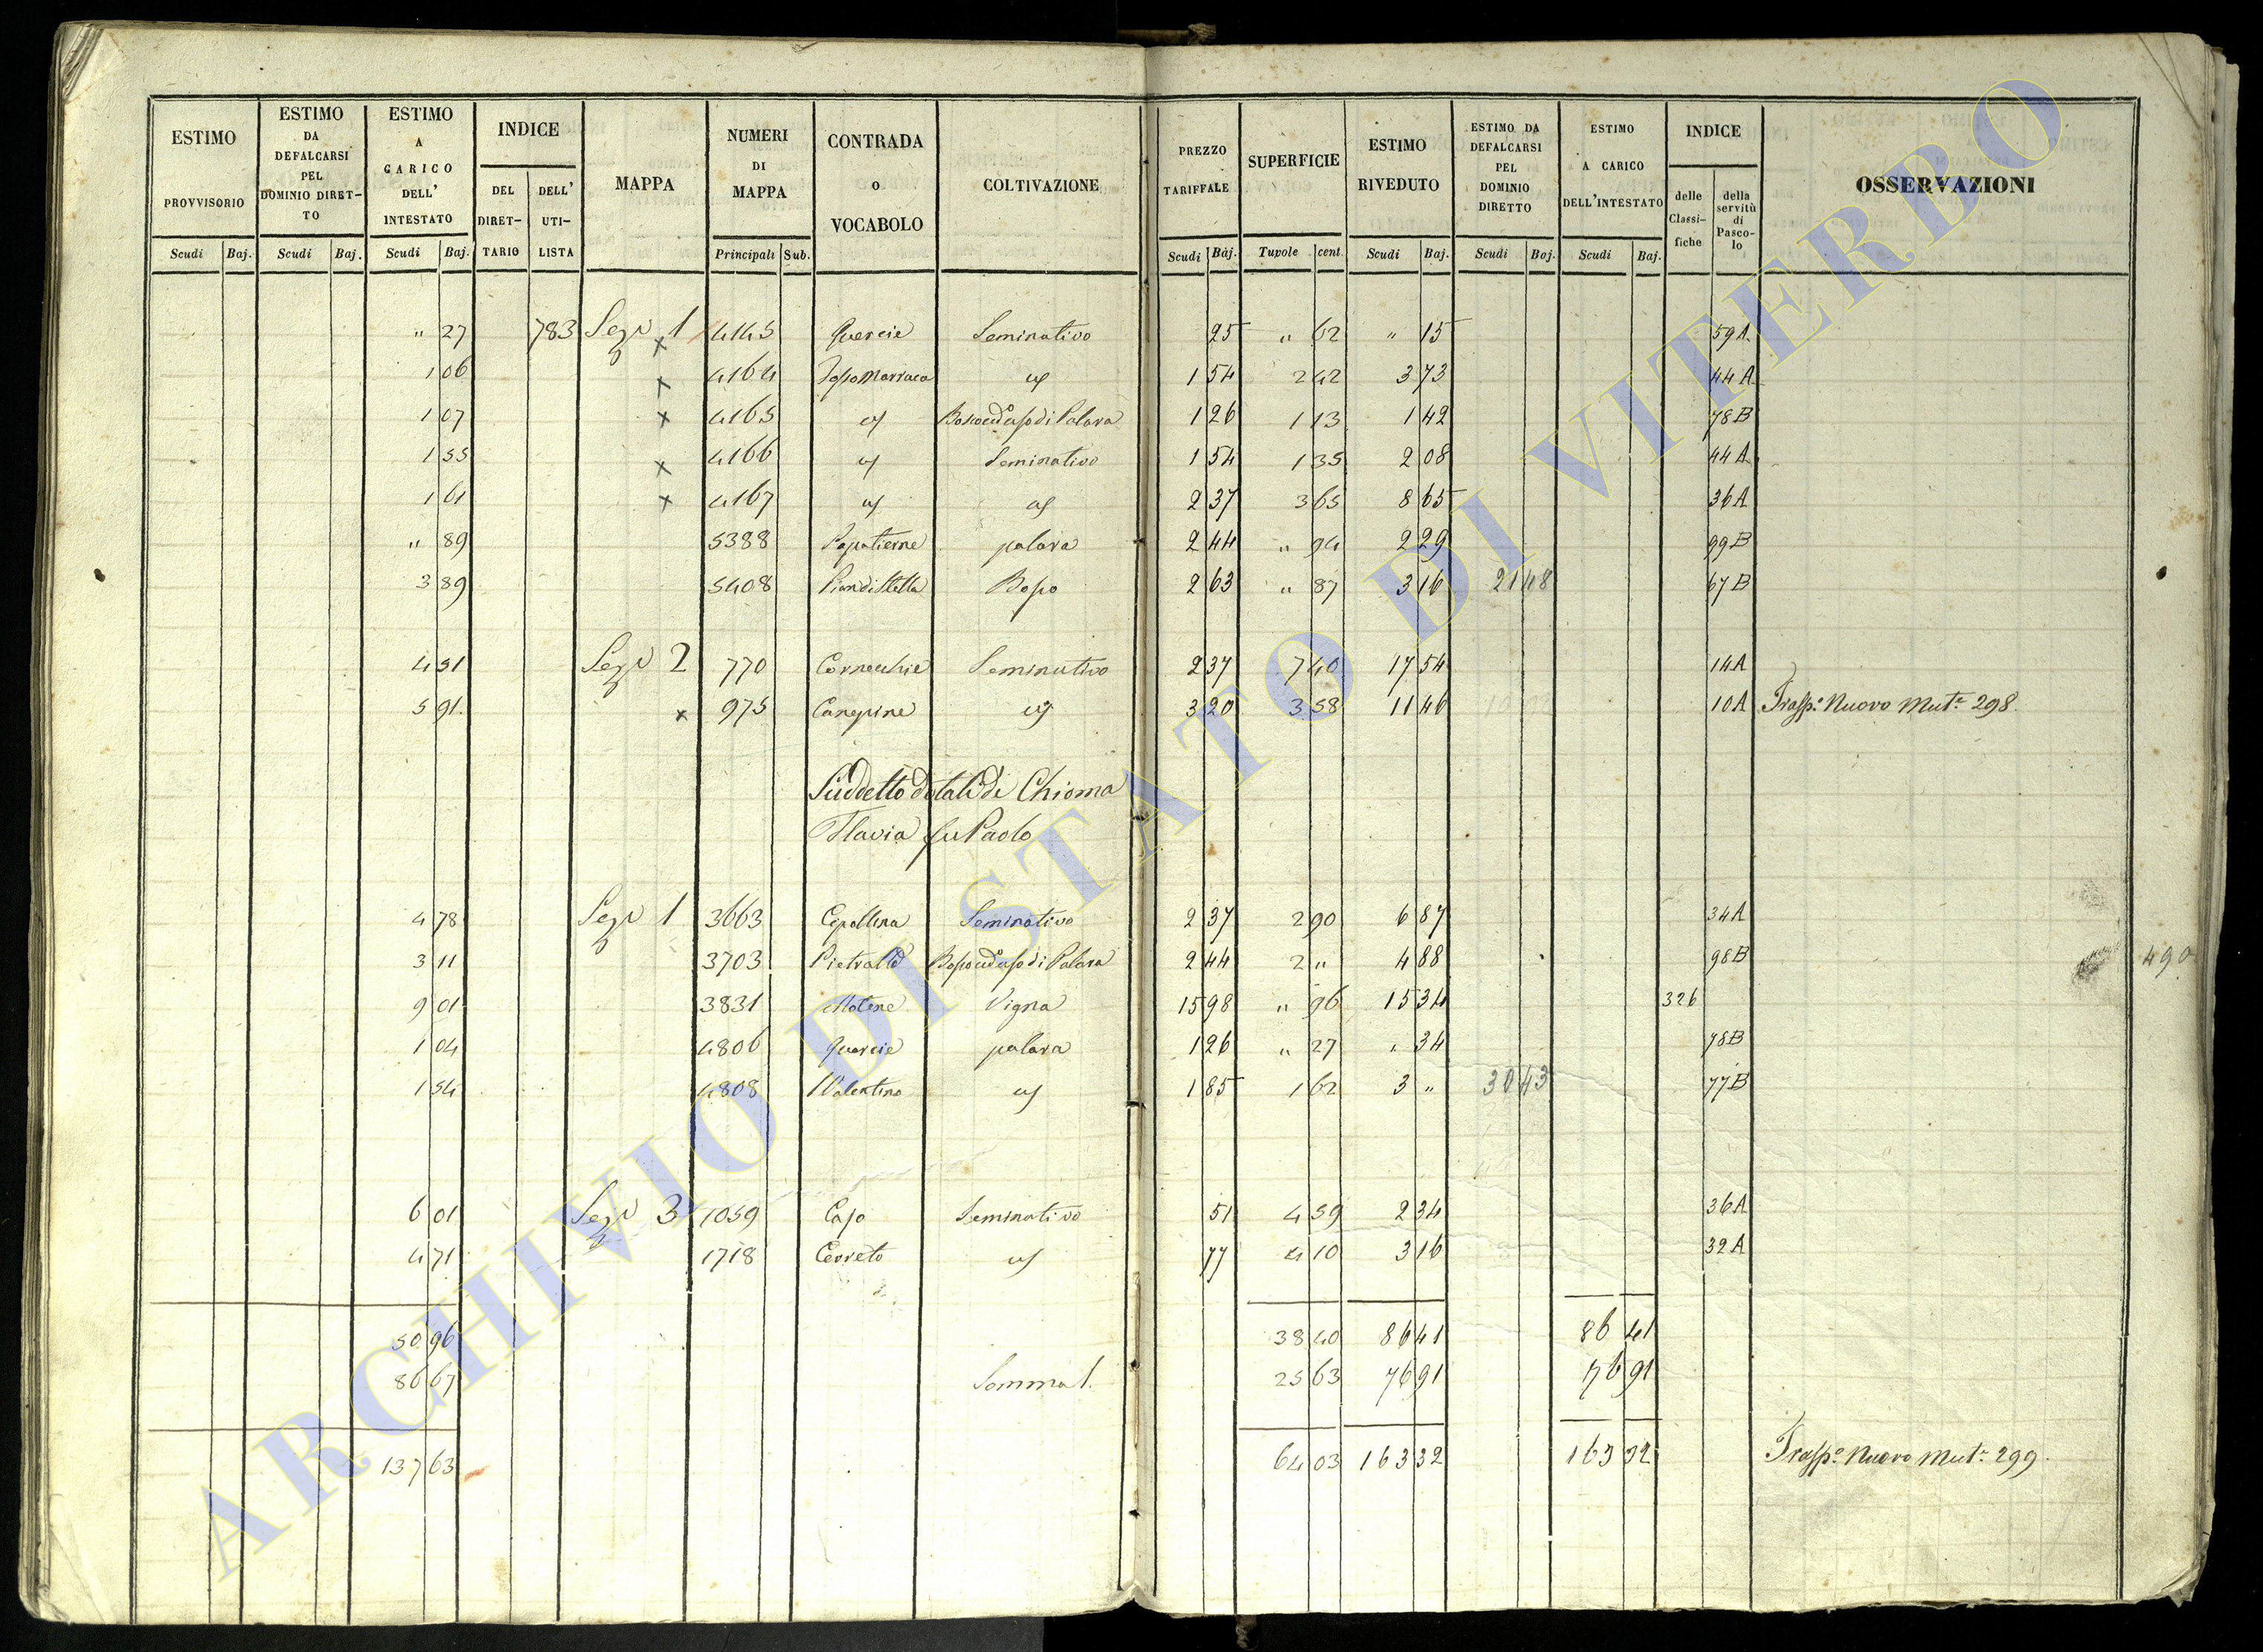 ESTIMO PROVVISORIO Scudi Baj.
ESTIMO DA DEFALCARSI PEL DOMINIO DIRETTO Scudi Baj.
ESTIMO A CARICO DELL' INTESTATO Scudi Baj.
INDICE DEL DIRETTARIO DELL' UTILISTA
MAPPA
NUMERI DI MAPPA Principali Sub.
CONTRADA o VOCABOLO
COLTIVAZIONE
PREZZO TARIFFALE Scudi Baj.
SUPERFICIE Tavole cent.
ESTIMO RIVEDUTO Scudi Baj.
ESTIMO DA DEFALCARSI PEL DOMINIO DIRETTO Scudi Baj.
ESTIMO A CARICO DELL'INTESTATO Scudi Baj.
INDICE delle Classifiche della servitù di Pascolo
OSSERVAZIONI
" 27 783 Sezº 1 4145 Quercie Seminativo 25 " 62 " 15 59A
1 06 4164 1 54 2 42 3 73 44A
1 07 4165 1 26 1 13 1 42 78B
1 55 4166 Seminativo 1 54 1 35 2 08 44A
1 61 4167 2 37 3 65 8 65 36A
" 89 5388 palara 2 44 " 94 2 29 99B
3 89 5408 2 63 " 87 3 16 21 48 67B
4 51 Sezº 2 770 Cornecchie Seminativo 2 37 7 40 17 54 14A
5 91 975 Canepine 3 20 3 58 11 46 10A Trasp.º Nuovo Mut.e 298
Suddetto dotali di Chioma
Flavia fu Paolo
4 78 Sezº 1 3663 Cipollina Seminativo 2 37 2 90 6 87 34A
3 11 3703 2 44 2 " 4 88 98B 490
9 01 3831 Vigna 15 98 " 96 15 34 326
1 04 4806 Quercie palara 1 26 " 27 " 34 78B
1 54 4808 1 85 1 62 3 " 30 43 77B
6 01 Sezº 3 1059 Seminativo 51 4 59 2 34 36A
4 71 1718 Cerreto 77 4 10 3 16 32A
50 96 38 40 86 41 86 41
86 67 Somma 1. 25 63 76 91 76 91
137 63 64 03 163 32 163 32 Trasp.º Nuovo Mut.e 299.
ARCHIVIO DI STATO DI VITERBO